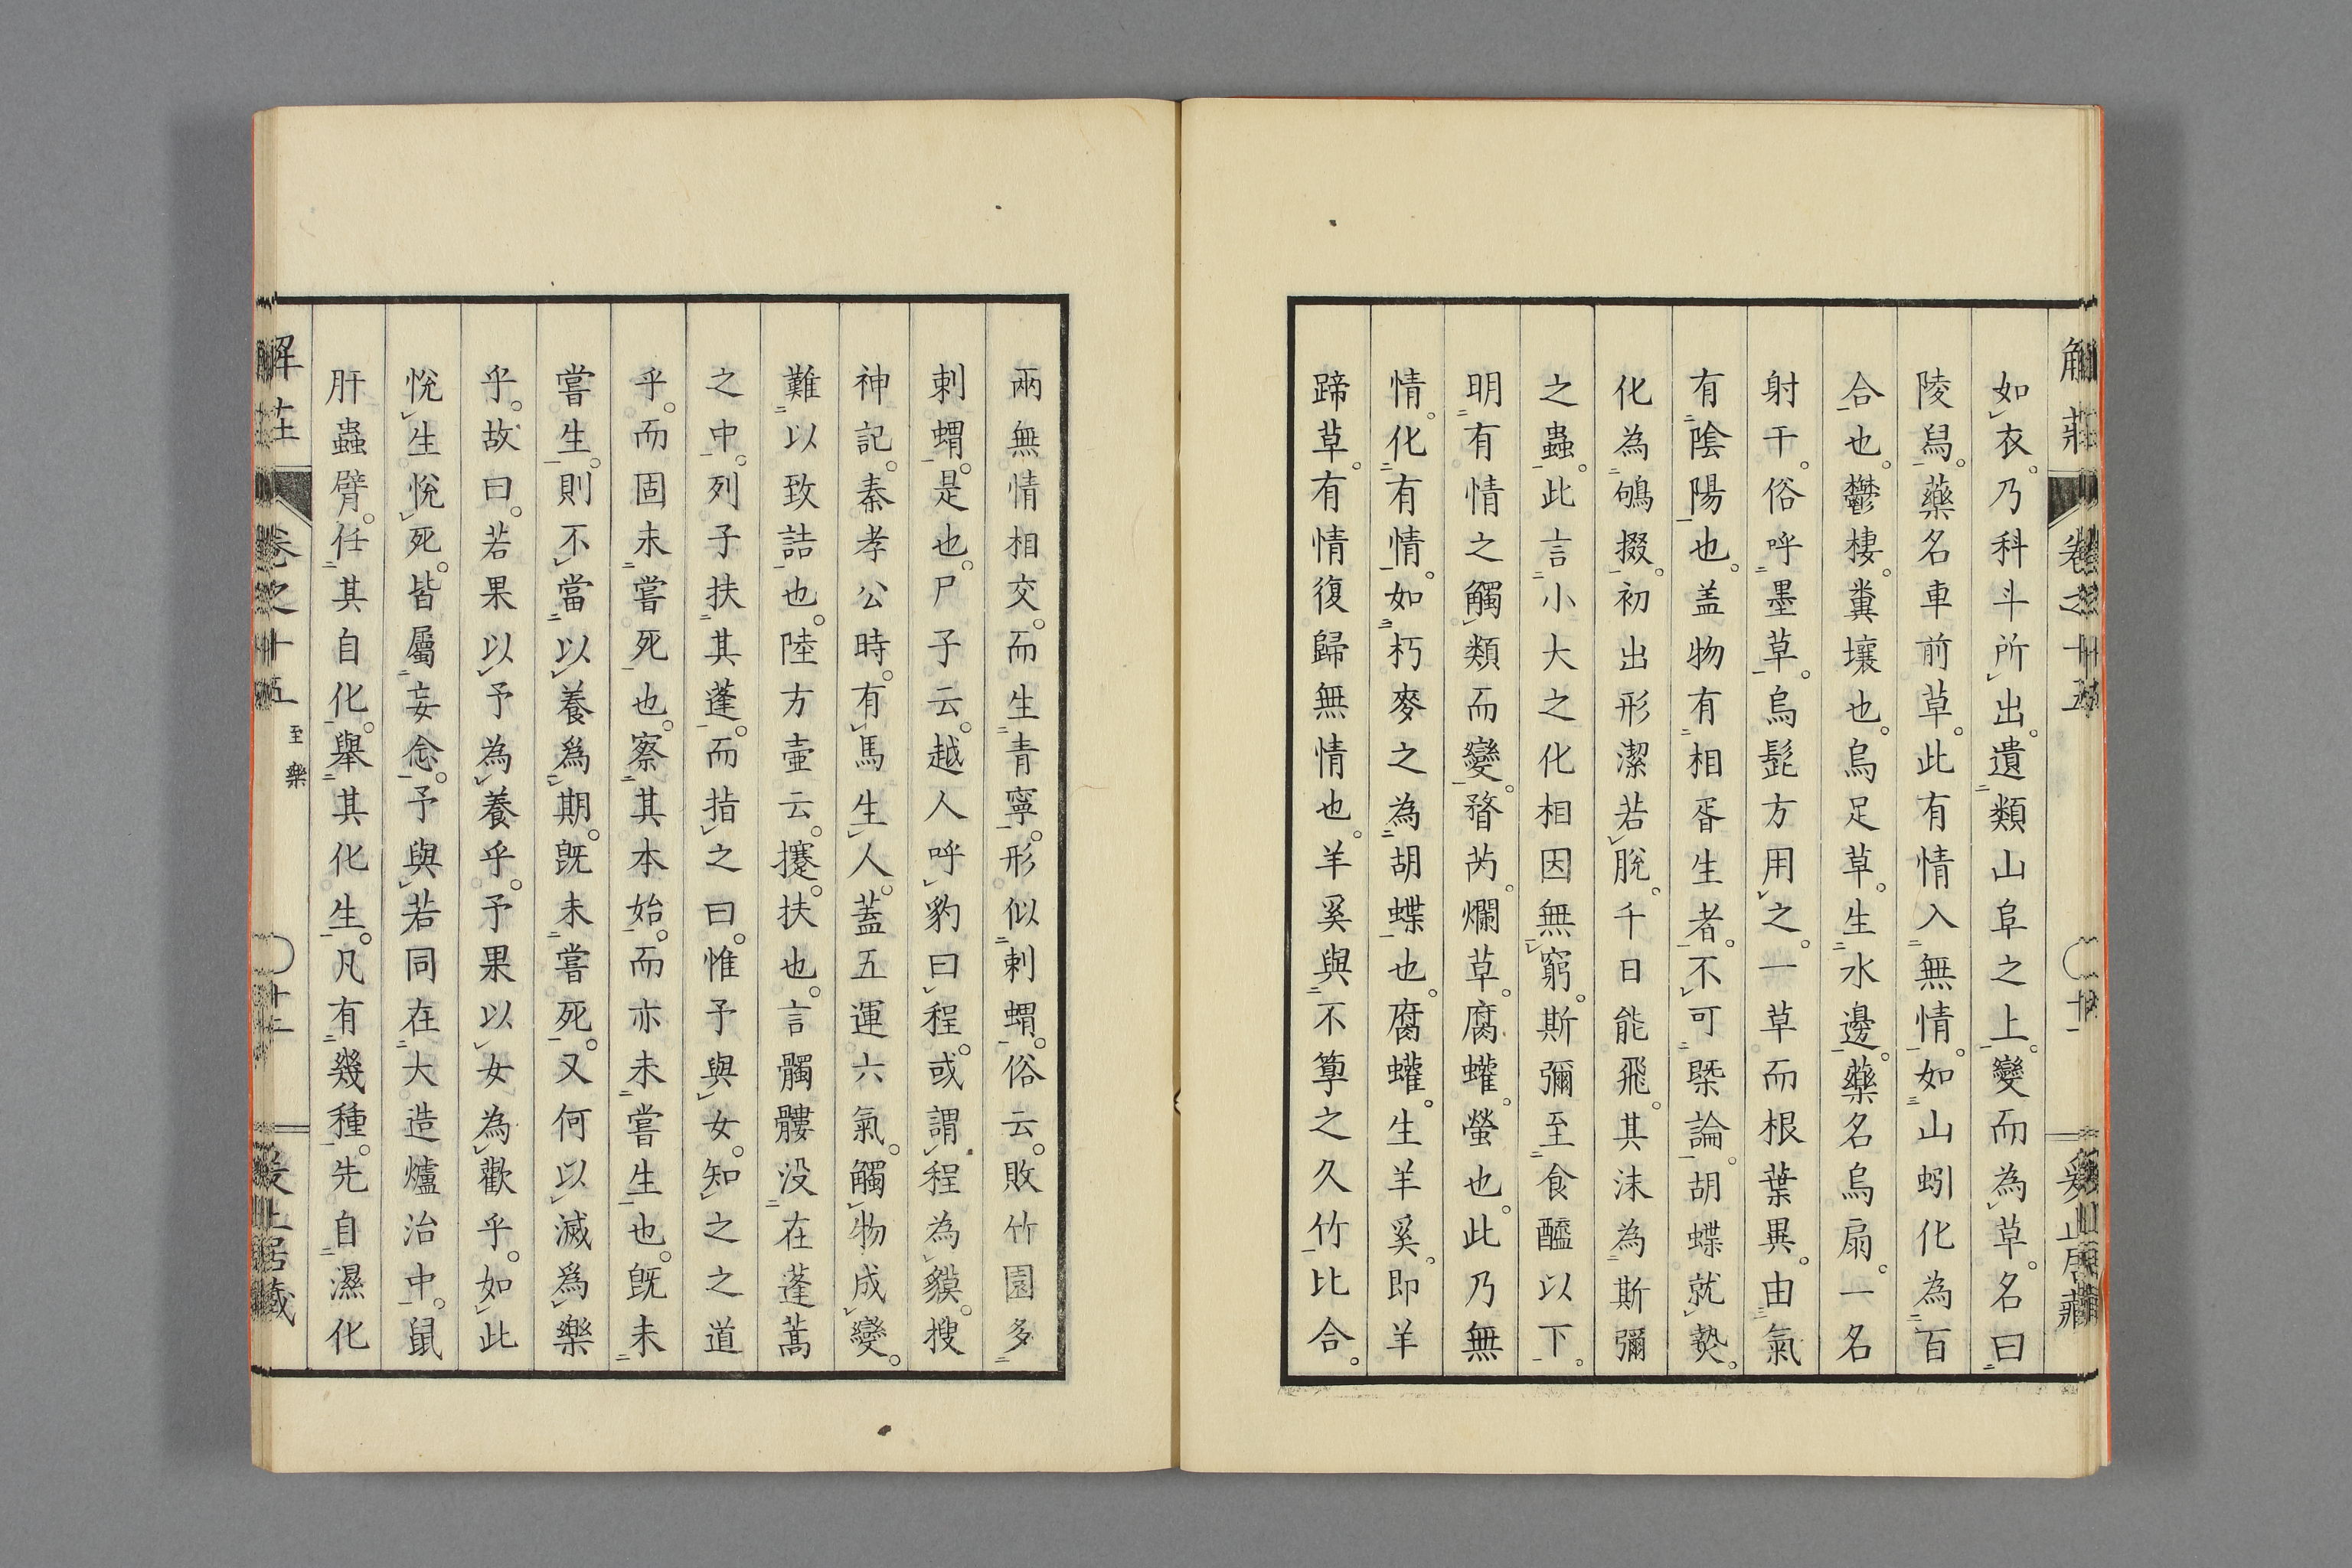 如衣。乃科斗所出。遺類山阜之上。變而為草。名曰
陵舄。藥名車前草。此有情入無情。如山蚓化為百
合也。鬱棲。糞壤也。烏足草。生水邊。藥名烏扇。一名
射干。俗呼墨草。烏髭方用之。一草而根葉異。由氣
有陰陽也。盖物有相胥生者。不可槩論。胡蝶就𤍠。
化為鴝掇。初出形潔若脫。千日能飛。其沫為斯彌
之蟲。此言小大之化相因無窮。斯彌至食醯以下。
明有情之觸類而變。瞀芮。爛草。腐蠸。螢也。此乃無
情。化有情。如朽麥之為胡蝶也。腐蠸。生羊奚。即羊
蹄草。有情復歸無情也。羊奚與不箰之久竹比合。
兩無情相交。而生青寧。形似刺蝟。俗云。敗竹園多
刺蝟。是也。尸子云。越人呼豹曰程。或謂程為貘。搜
神記。秦孝公時。有馬生人。蓋五運六氣。觸物成變。
難以致詰也。陸方壺云。攓。扶也。言髑髏没在蓬蒿
之中。列子扶其蓬。而指之曰。惟予與女。知之之道
乎。而固未嘗死也。察其本始。而亦未嘗生也。旣未
嘗生。則不當以養爲期。旣未嘗死。又何以滅爲樂
乎。故曰。若果以予為養乎。予果以女為歡乎。如此
悅生悅死。皆屬妄念。予與若同在大造爐冶中。鼠
肝蟲臂。任其自化。舉其化生。凡有幾種。先自濕化
解莊 卷之十五 至樂 十二